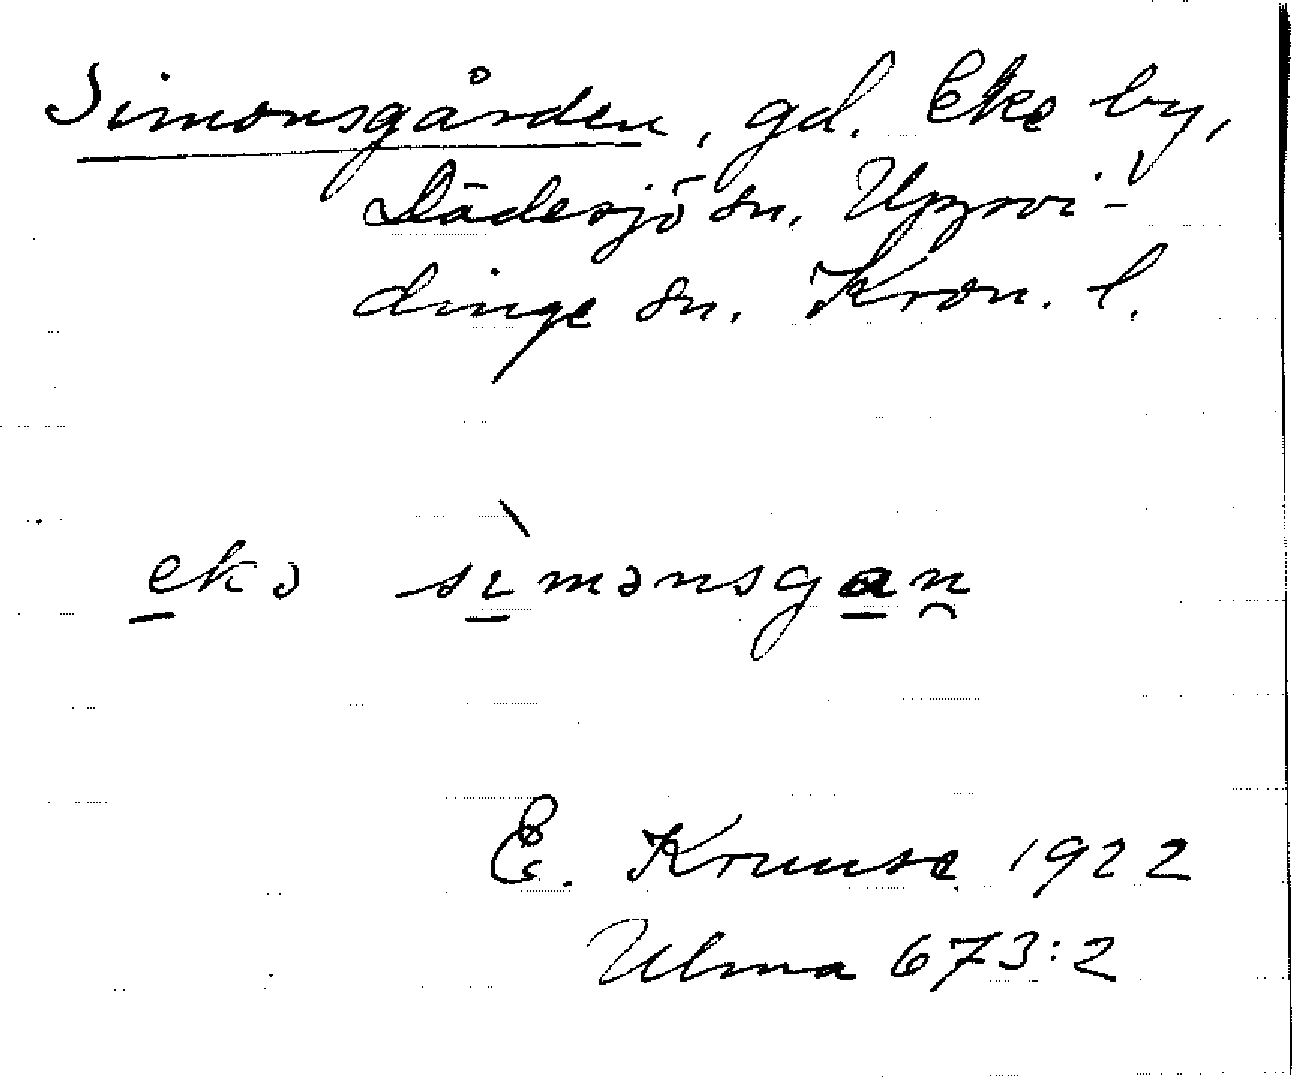 Simonsgården, gd. Eke by,
Dädesjö sn. Uppvi-
dinge sn. Kron. l.
ekə sìmənsgan
E. Kruuse 1922
Ulma 673:2